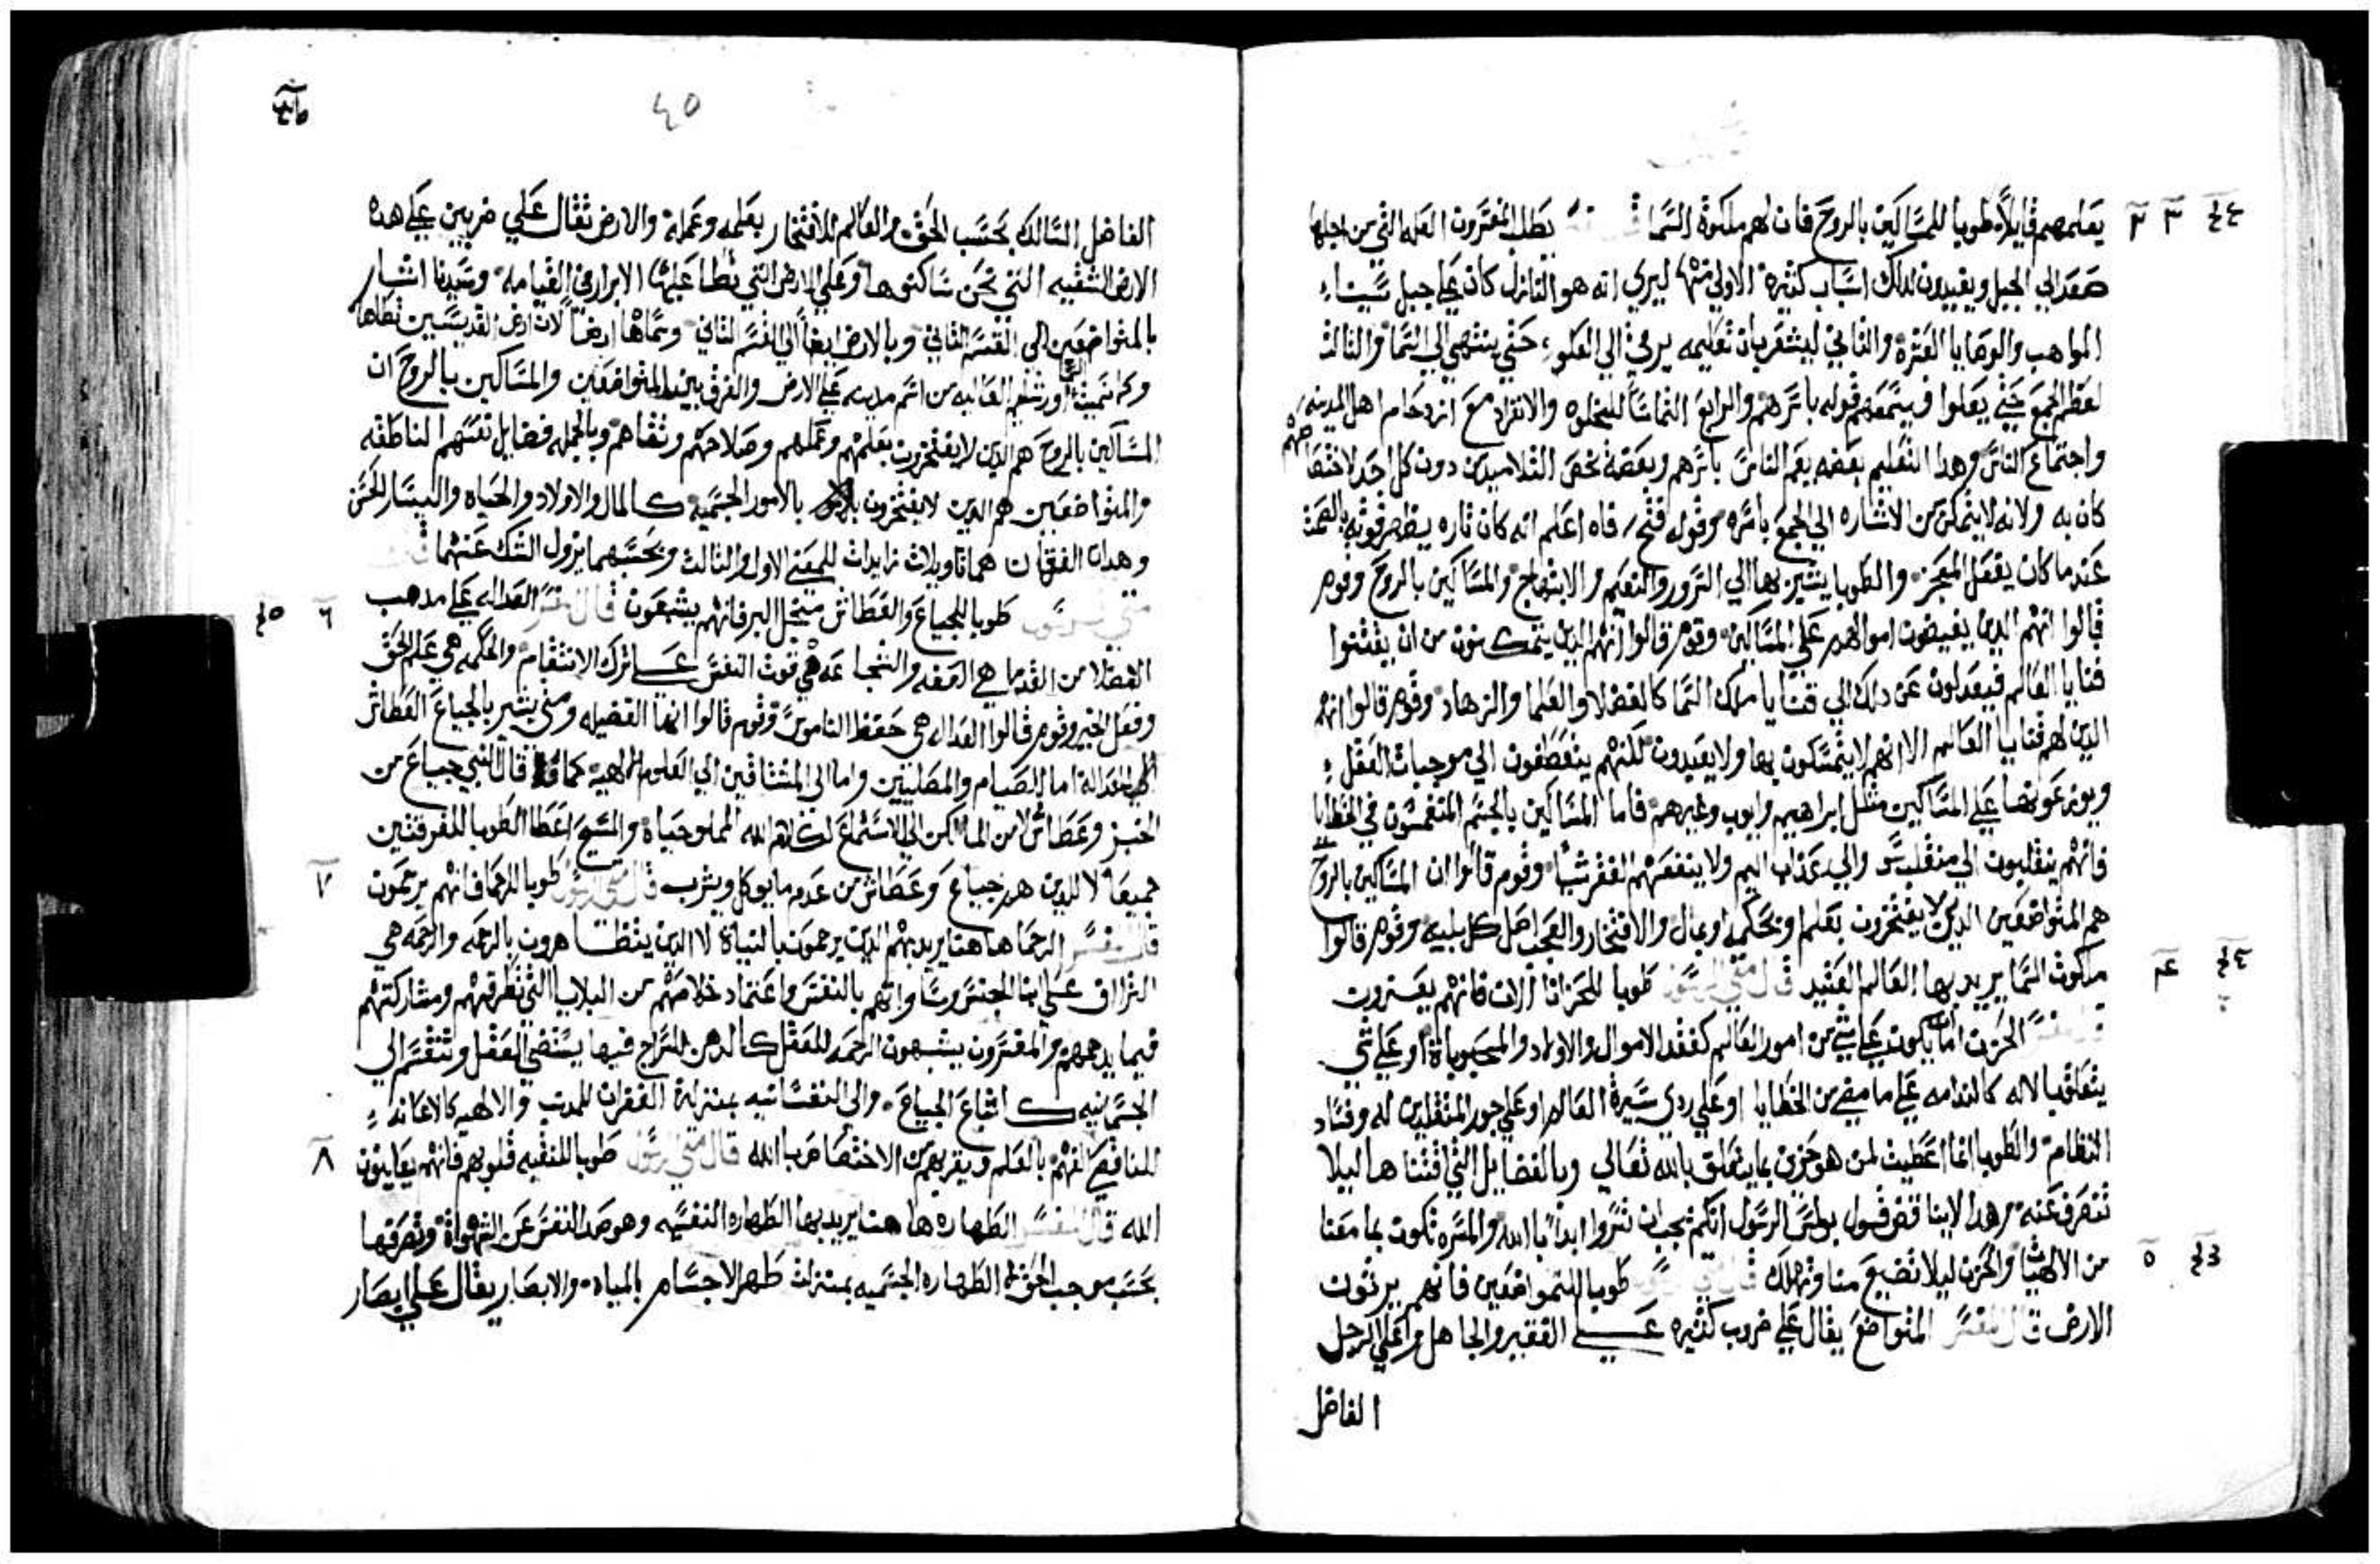 يعلمهم قايلاً طوبا للمساكين بالروح فان لهم ملكوة السما بطلب المفسرون العله التي من اجلها
صعد الي الجبل ويفيدون لدلك اسباب كثيره الاولي منها ليري انه هو النازل كان علي جبل سيناء
المواهب والوصايا العشرة والثاني ليشعر بان تعليمه يرقي الي العلو حتي ينتهي الي السما والثالث
لعظم الجمع حتي يعلوا فيسمعهم قوله باسرهم والرابع التماسا للخلوه والانفراد مع ازدحام اهل المدينه
واجتماع الناس وهدا التعليم بعضه يعم الناس باسرهم وبعضه يخص التلاميد دون كل احد لاختصاصهم
كان به ولانه لايتمكن من الاشاره الي الجمع باسره وقوله فتح فاه اعلم انه كان تاره يظهر قوته بالصمت
عندما كان يفعل المعجز والطوبا يشير بها الي السرور والنعيم والابتهاج والمساكين بالروح وقوم
قالوا انهم الدين يفيضون اموالهم علي المساكين وقوم قالوا انهم الدين يتمكنون من ان يقتنوا
قنايا العالم فيعدلون عن دلك الي قنايا ملك السما كالفضلا والعلما والزهاد وقوم قالوا انهم
الدين لهم قنايا العالم الا انهم لايتمسكون بها ولا يفيدون لكنهم ينعطفون الي موجبات العقل
ويوزعونها علي المساكين مثل ابراهيم وايوب وغيرهم فاما المساكين بالجسم المنغمسون في الخطايا
فانهم ينقلبون الي منقلب سو والي عذاب اليم ولا ينفعهم الفقر شيا وقوم قالوا ان المساكين بالروح
هم المتواضعين الدين لا يفتخرون بعلم او بحكمه او بمال والافتخار والعجب اصل كل بليه وقوم قالوا
ملكوت السما يريد بها العالم العتيد قال متي الرسول طوبا للحزانا الان فانهم يعزون
قال المفسر الحزن اما ان يكون علي شي من امور العالم كفقد الاموال والاولاد والمحبوباة او علي شي
يتعلق بالاله كالندامه علي ما مضي من الخطايا او علي ردي سيرة العالم او علي جور المتقلدين له وفساد
النظام والطوبا انما اعطيت لمن هو حزين بما يتعلق بالله تعالي وبالفضايل التي اقتناها ليلا
تنصرف عنه وهدا لايناقض قول بولس الرسول انكم يجب ان تسروا ابدا بالله والمسره تكون بما معنا
من الالهيات والحزن ليلا تضيع منا وتهلك طوبا للمتواضعين فانهم يرثون
الارض قال المفسر المتواضع يقال علي ضروب كثيره علي الفقير والجاهل وعلي الرجل
الفاضل
٤٥
الفاضل السالك بحسب الحق والعالم للافتخار بعلمه وعمله والارض تقال علي ضربين علي هده
الارض الشقيه التي نحن ساكنوها وعلي الارض التي تطا عليها الابرار في القيامه وسيدنا اشار
بالمتواضعين الي القسم الثاني وبالارض ايضا الي القسم الثاني وسماها ارضا لان ارض القديسين تطاها
وكما سميت اورشليم العاليه من اسم مدينه علي الارض والفرق بين المتواضعين والمساكين بالروح ان
المساكين بالروح هم الدين لايفتخرون بعلمهم وعملهم وصلاحهم وتقاهم وبالجمله فضايل نفسهم الناطقه
والمتواضعين هم الدين لايفتخرون بالامور الجسميه كالمال والاولاد والحياه واليسار الحسن
وهدان الفقهان هما تاويلات زايدات للمعني الاول والثالث وبحسبهما يزول الشك عنهما قال
متي الرسول طوبا للجياع والعطاش من اجل البر فانهم يشبعون قال المفسر العداله علي مدهب
الفضلا من القدما هي العفه والشجاعه هي قوت النفس علي ترك الانتقام والحكمه هي علم الحق
وفعل الخير وقوم قالوا العداله هي حفظ الناموس وقوم قالوا انها الفضيله ومتي يشير بالجياع العطاش
الي العداله اما الصيام والمصليين واما الي المشتاقين الي العلوم الالهيه كما قال النبي جياع من
الخبز وعطاش لا من الما لكن الي الاستماع لكلام الله المملو حياة والمسيح اعطا الطوبا للفرقتين
جميعا لا للدين هم جياع وعطاش من عدم مايوكل ويشرب قال متي الرسول طوبا للرحما فانهم يرحمون
قال المفسر الرحما هاهنا يريد بهم الدين يرحمون بالنياة لا الدين يتظاهرون بالرحمه والرحمه هي
التراف علي ابنا الجنس ومساواتهم بالنفس واعتماد خلاصهم من البلايا التي تطرقهم ومشاركتهم
فيما يدهمهم والمفسرون يشبهون الرحمه للعقل كالدهن للسراج فبها يستضي العقل وتنقسم الي
الجسمانيه كاشباع الجياع والي النفسانيه بمنزلة الغفران للمدنب والالهيه كالاعانه
للناقص الفهم بالعلم ويقربهم من الاختصاص بالله قال متي الرسول طوبا للنقيه قلوبهم فانهم يعاينون
الله قال المفسر الطهاره هاهنا يريد بها الطهاره النفسيه وهو صد النفس عن الشهواة وتصرفها
بحسب موجب الحق لا الطهاره الجسميه بمنزلت طهر الاجسام بالمياه والابصار يقال علي ابصار